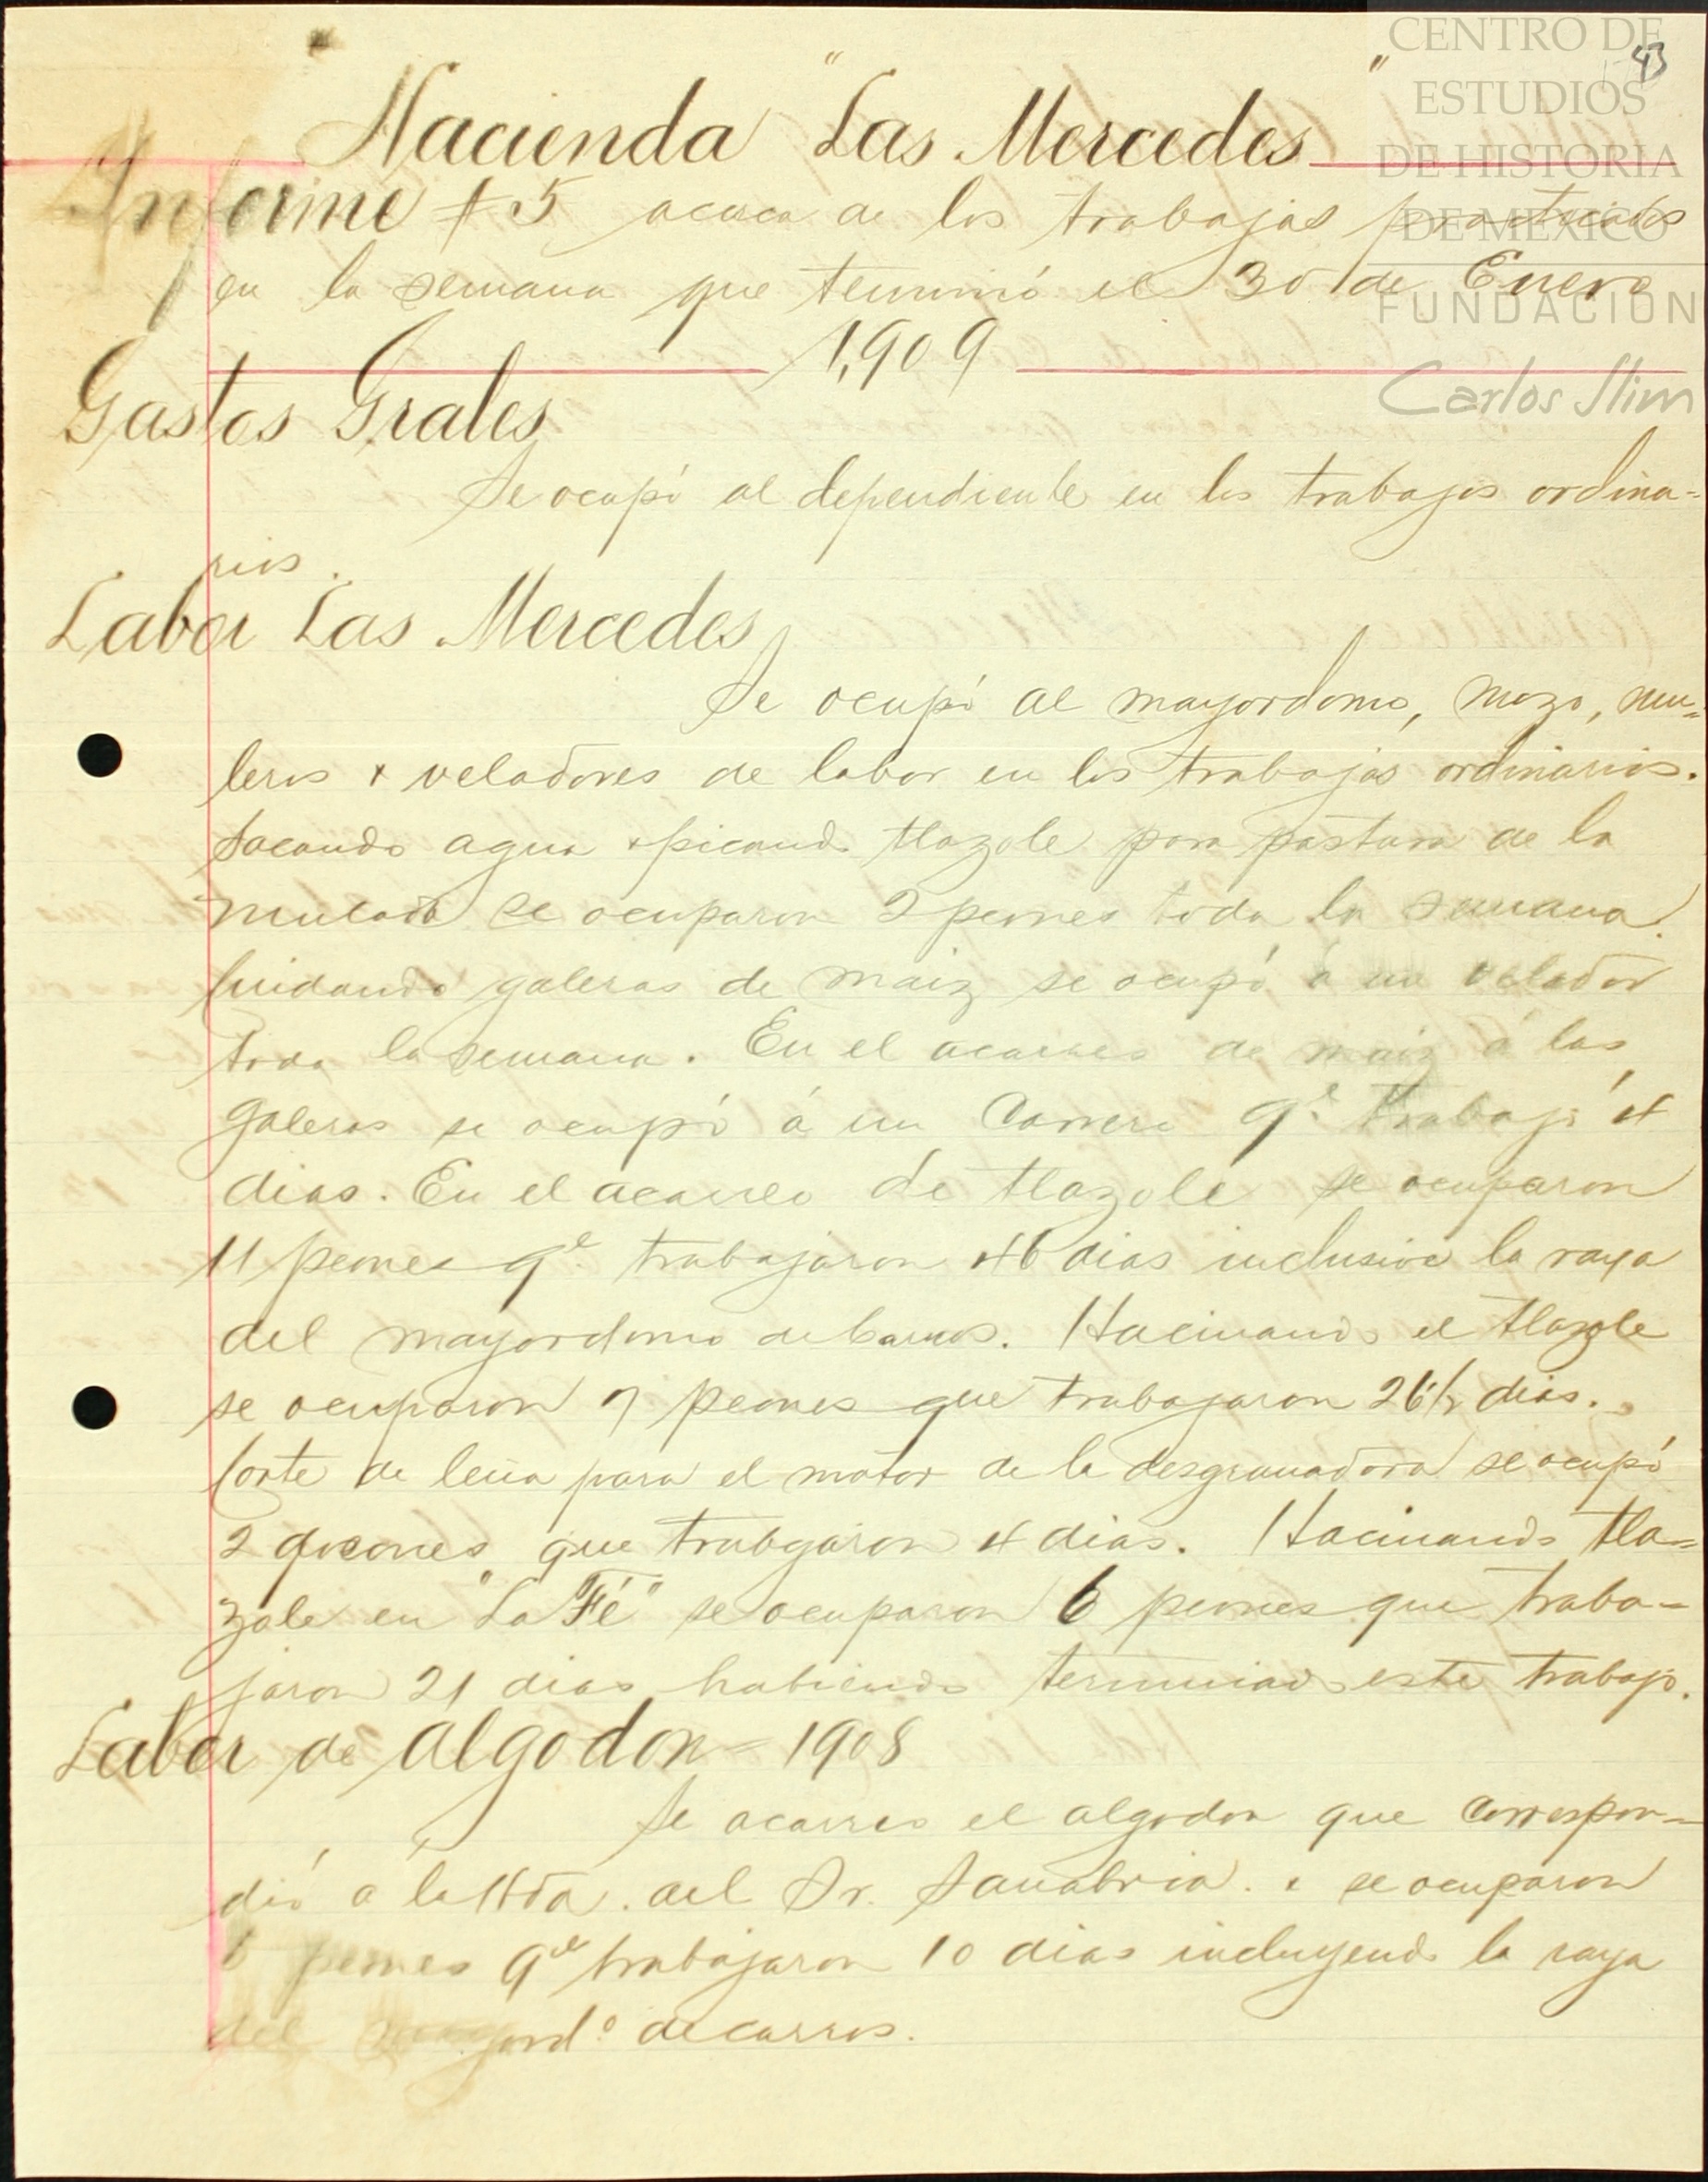 CENTRO DE
ESTUDIOS
DE HISTORIA
DE MEXICO
FUNDACION
Carlos Slim
43
Hacienda "Las Mercedes"
Informe # 5 acerca de los trabajos practicados
en la semana que terminó el 30 de Enero
1,909
Gastos Grales
Se ocupó al dependiente en los trabajos ordina=
rios.
Labor Las Mercedes
Se ocupó al mayordomo, mozo, mu=
leros y veladores de labor en los trabajos ordinarios.
Sacando agua y picando tlazole para pastura de la
mulada se ocuparon 2 peones toda la semana.
Cuidando galeras de maiz se ocupó á un velador
toda la semana. En el acarreo de maiz á las
galeras se ocupó á un Carrero qe trabajó 4
dias. En el acarreo de tlazole se ocuparon
11 peones qe trabajaron 46 dias inclusive la raya
del mayordomo de carros. Hacinando el tlazole
se ocuparon 7 peones que trabajaron 26½ dias.
Corte de leña para el motor de la desgranadora se ocupó
2 peones que trabajaron 4 dias. Hacinando tla=
zole en "La Fé" se ocuparon 6 peones que traba=
jaron 21 dias habiendo terminado este trabajo.
Labor de algodon = 1908
Se acarreo el algodon que correspon=
dió á la Hda. del Sr. Sanabria. y se ocuparon
peones qe trabajaron 10 dias incluyendo la raya
del mayordo de carros.